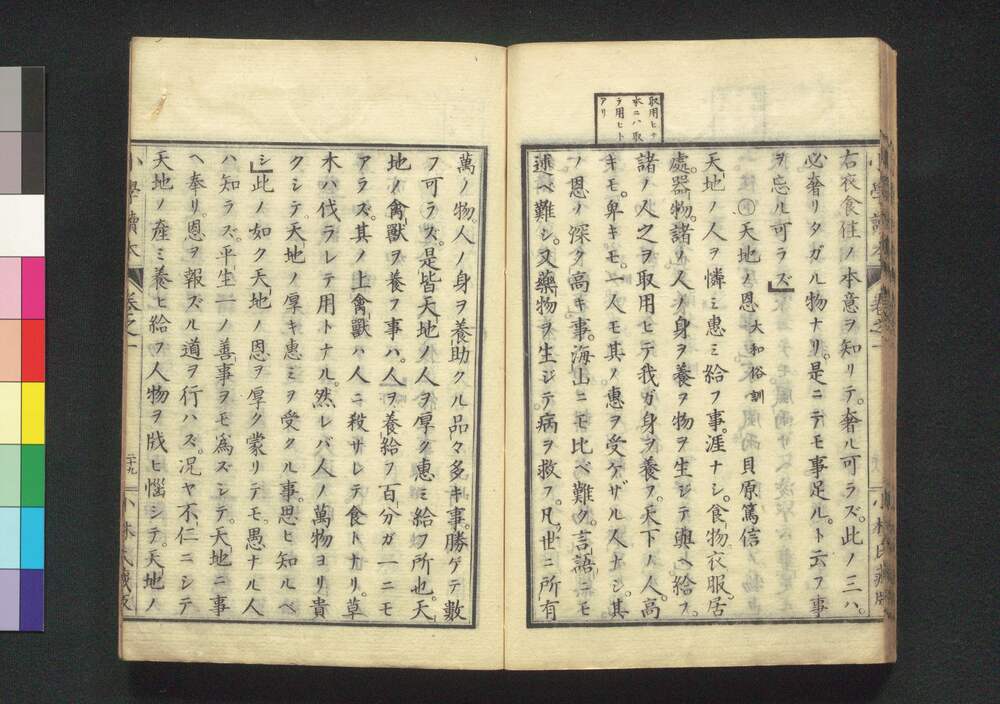 取用ヒヲ
本ニハ取
ラ用ヒト
アリ
右衣食住ノ本意ヲ知リテ。奢ル可ラズ。此ノ三ハ。
必奢リタガル物ナリ。是ニテモ事足ル。ト云フ事
ヲ忘ル可ラズ」
天地ノ恩 大和俗訓 貝原篤信
天地ノ人ヲ憐ミ惠ミ給フ事。涯ナシ。食物衣服居
處器物。諸ノ人ノ身ヲ養ヲ物ヲ生ジテ與ヘ給フ。
諸ノ人之ヲ取用ヒテ我ガ身ヲ養フ。天下ノ人。高
キモ。卑キモ。一人モ其ノ惠ヲ受ケザル人ナシ。其
ノ恩ノ深ク高キ事。海山ニモ比ベ難ク。言語ニモ
述ベ難シ。又藥物ヲ生ジテ。病ヲ救フ。凡世ニ所有
萬ノ物。人ノ身ヲ養助クル品々多キ事。勝ゲテ數
フ可ラズ。是皆天地ノ人ヲ厚ク惠ミ給フ所也。天
地ノ禽獸ヲ養フ事ハ。人ヲ養給フ百分ガ一ニモ
アラズ。其ノ上禽獸ハ人ニ殺サレテ食トナリ。草
木ハ伐ラレテ用トナル。然レバ人ノ萬物ヨリ貴
クシテ。天地ノ厚キ惠ミヲ受クル事。思ヒ知ルベ
シ」此ノ如ク天地ノ恩ヲ厚ク蒙リテモ。愚ナル人
ハ知ラズ。平生一ノ善事ヲモ爲ズシテ。天地ニ事
ヘ奉リ。恩ヲ報ズル道ヲ行ハズ。况ヤ不仁ニシテ
天地ノ產ミ養ヒ給フ人物ヲ戕ヒ惱シテ。天地ノ
小學讀本 卷之一 二十九 小林氏藏版